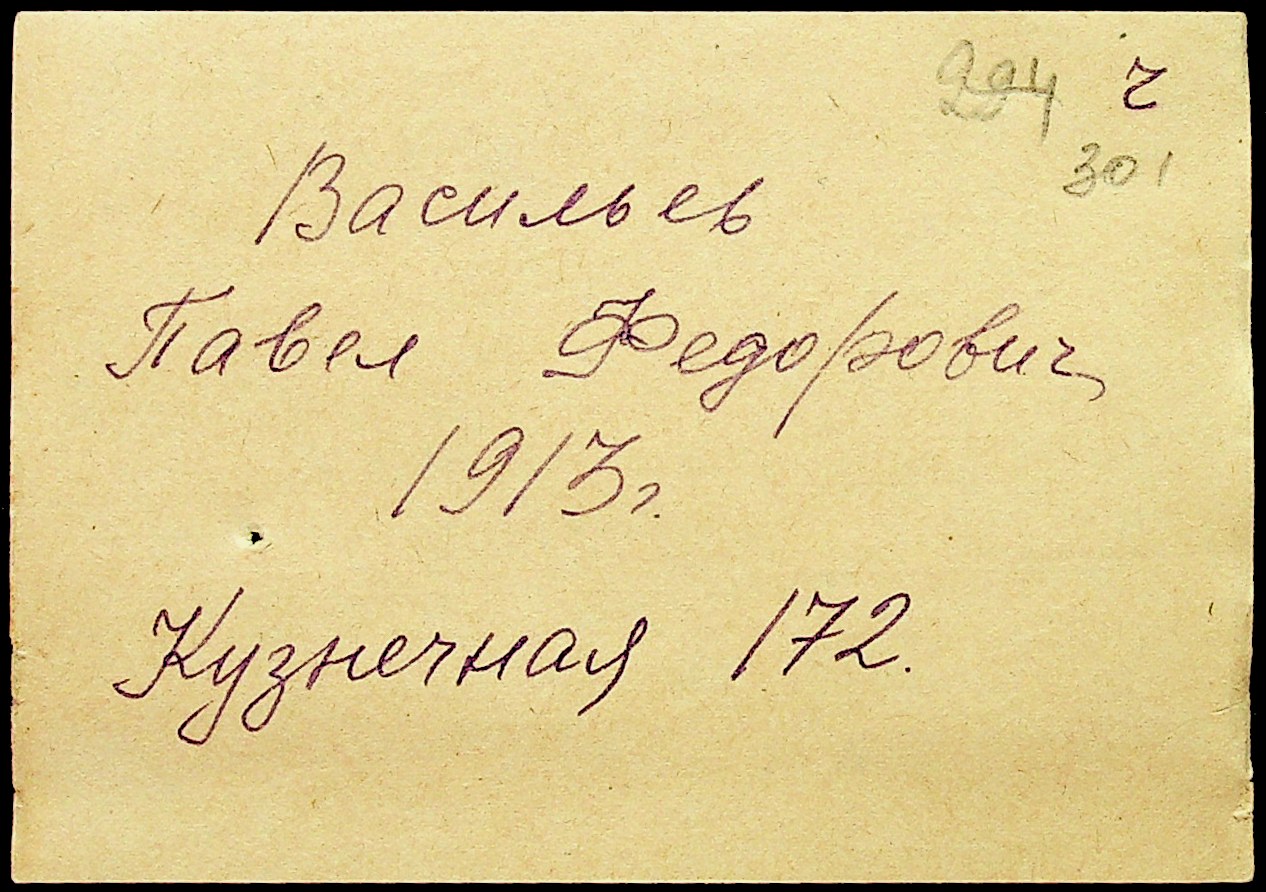 294 ч
301
Васильев
Павел Федорович
1913г.
Кузнечная 172.